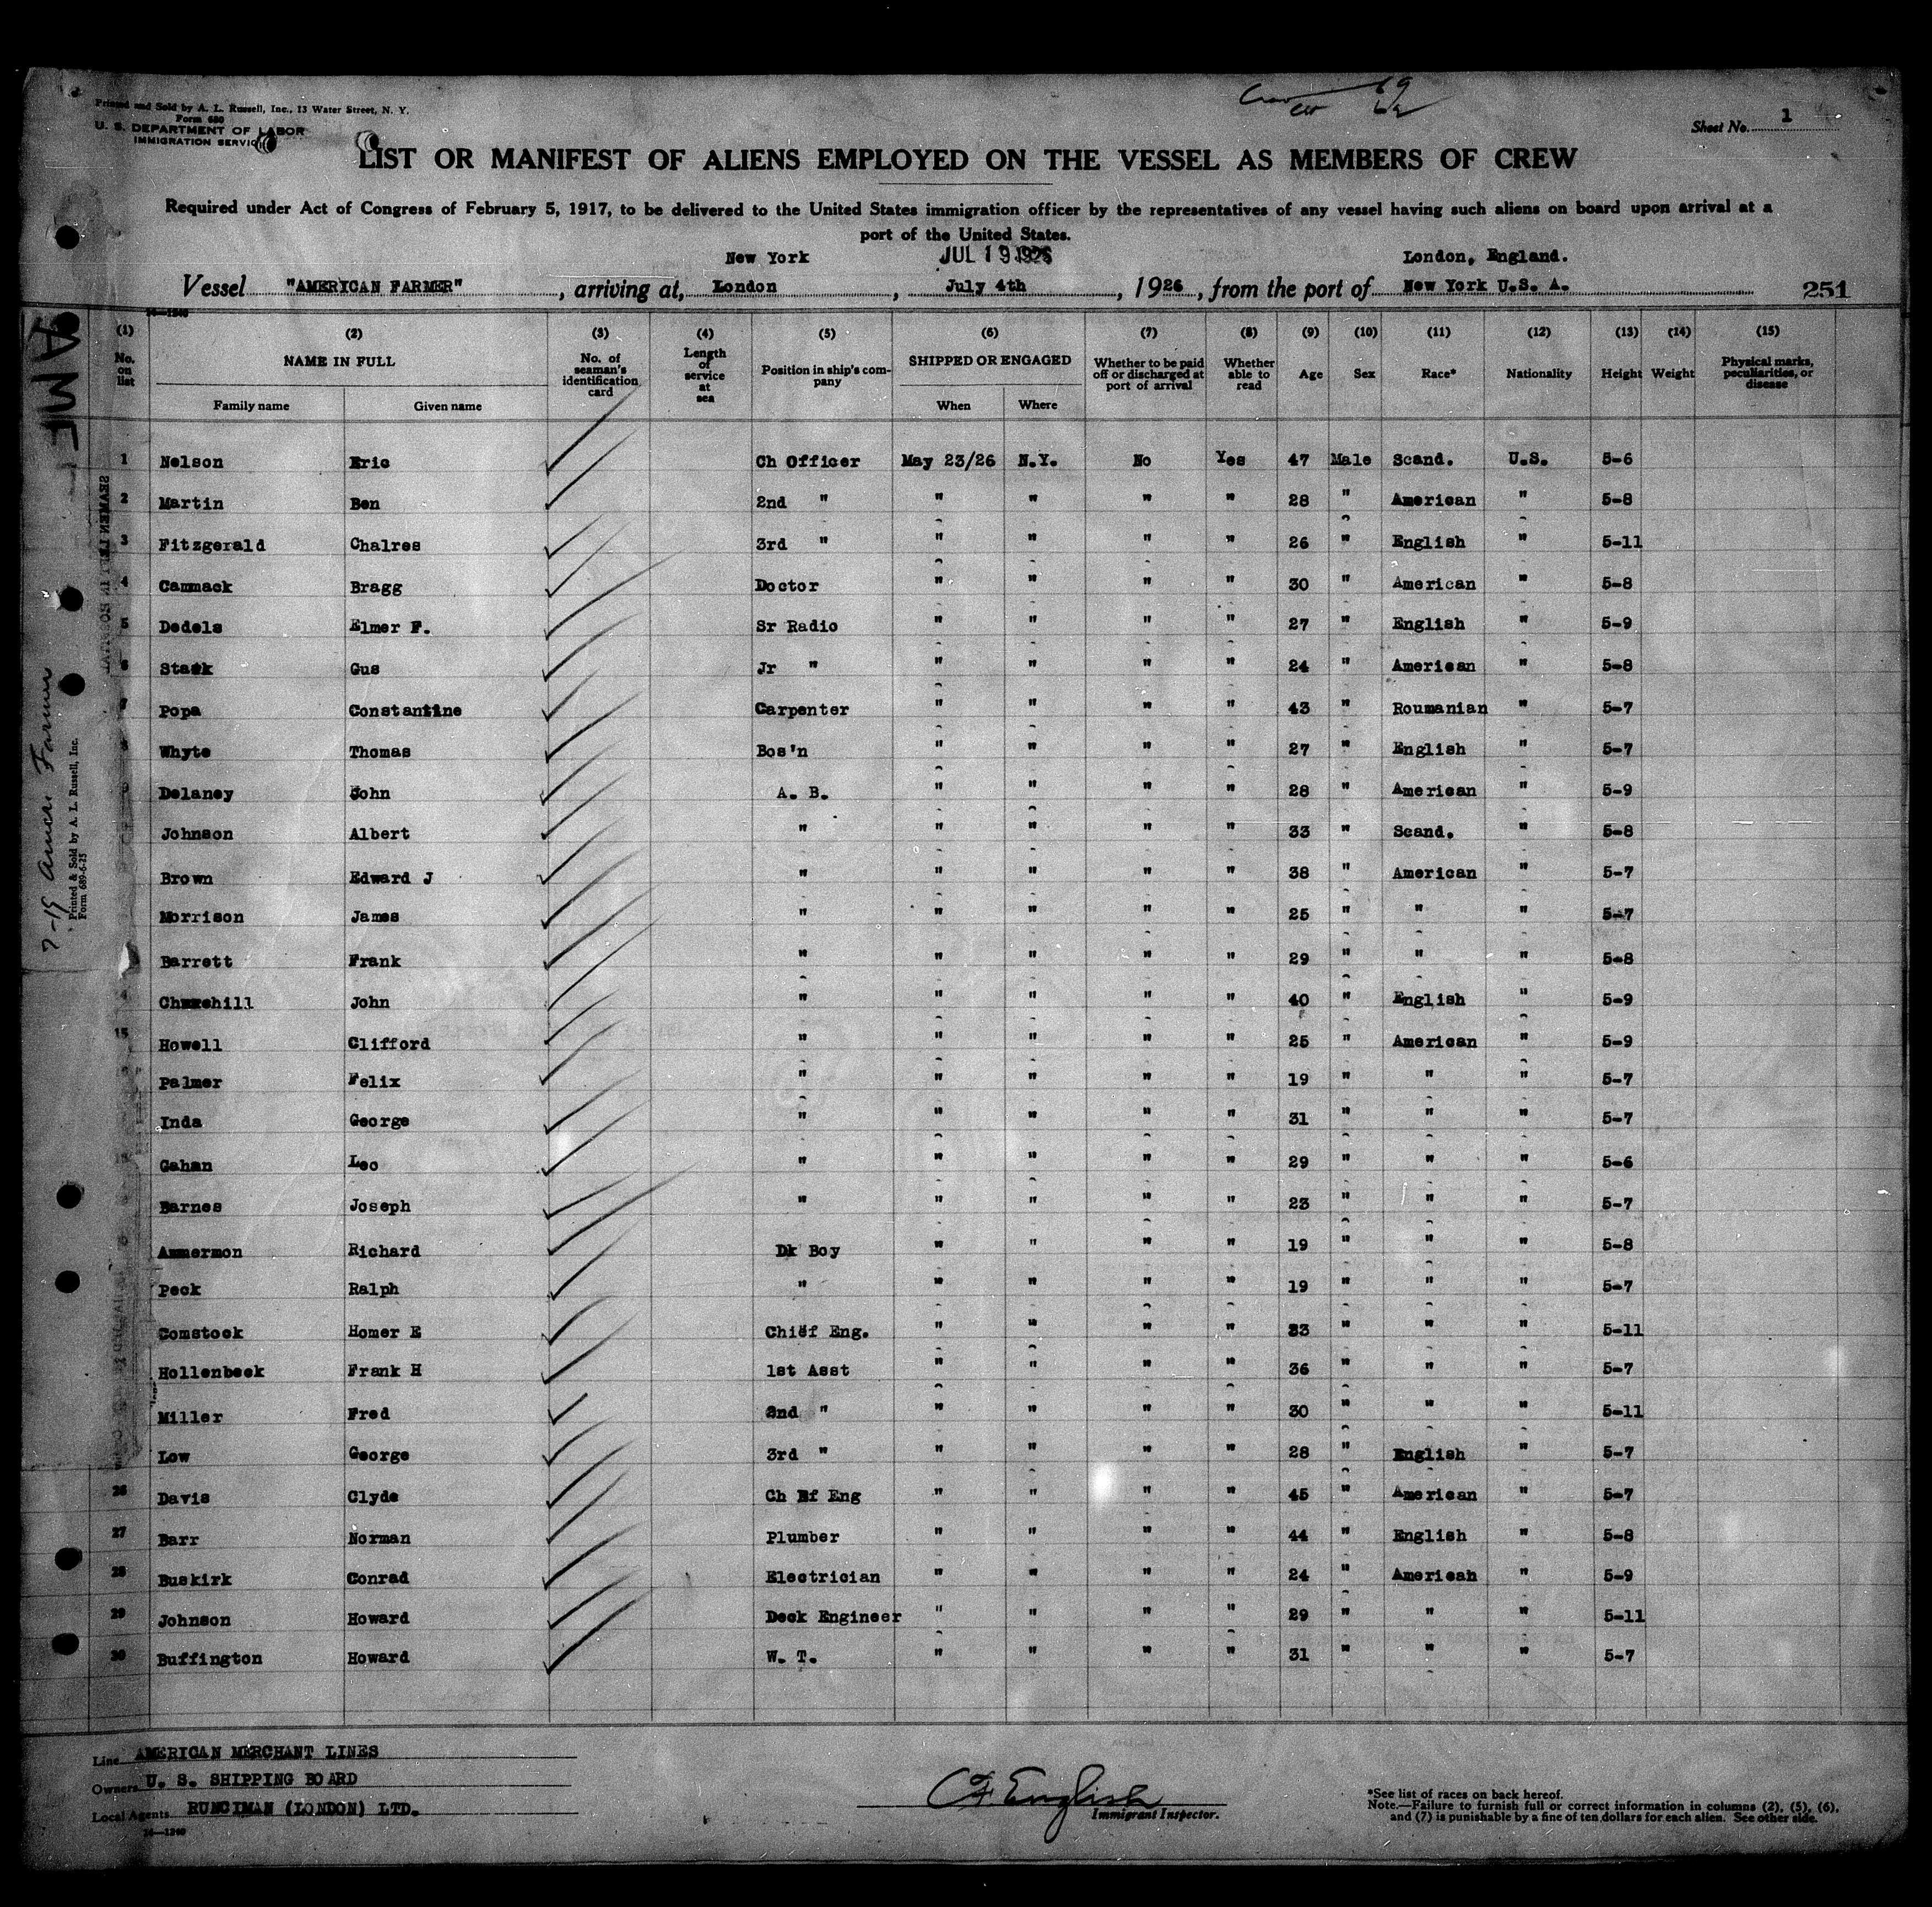 Printed and Sold by A. L. Russell, Inc., 13 Water Street, N. Y.
Form 680
U. S. DEPARTMENT OF LABOR
IMMIGRATION SERVICE
69
Sheet No. 1
LIST OR MANIFEST OF ALIENS EMPLOYED ON THE VESSEL AS MEMBERS OF CREW
Required under Act of Congress of February 5, 1917, to be delivered to the United States immigration officer by the representatives of any vessel having such aliens on board upon arrival at a
port of the United States.
New York JUL 19 1926 London, England.
Vessel "AMERICAN FARMER", arriving at, London, July 4th, 1926, from the port of New York U.S. A. 251
(1) (2) (3) (4) (5) (6) (7) (8) (9) (10) (11) (12) (13) (14) (15)
No. on list NAME IN FULL No. of seaman's identification card Length of service at sea Position in ship's company SHIPPED OR ENGAGED Whether to be paid off or discharged at port of arrival Whether able to read Age Sex Race* Nationality Height Weight Physical marks, peculiarities, or disease
Family name Given name When Where
1 Nelson Eric Ch Officer May 23/26 N.Y. No Yes 47 Male Scand. U.S. 5-6
2 Martin Ben 2nd " " " " " 28 " American " 5-8
3 Fitzgerald Chalres 3rd " " " " " 26 " English " 5-11
4 Cammack Bragg Doctor " " " " 30 " American " 5-8
5 Dedels Elmer F. Sr Radio " " " " 27 " English " 5-9
6 Stack Gus Jr " " " " " 24 " American " 5-8
7 Popa Constantine Carpenter " " " " 43 " Roumanian " 5-7
8 Whyte Thomas Bos'n " " " " 27 " English " 5-7
9 Delaney John A. B. " " " " 28 " American " 5-9
Johnson Albert " " " " " 33 " Scand. " 5-8
Brown Edward J " " " " " 38 " American " 5-7
Morrison James " " " " " 25 " " " 5-7
Barrett Frank " " " " " 29 " " " 5-8
4 Churchill John " " " " " 40 " English " 5-9
15 Howell Clifford " " " " " 25 " American " 5-9
Palmer Felix " " " " " 19 " " " 5-7
Inda George " " " " " 31 " " " 5-7
Gahan Leo " " " " " 29 " " " 5-6
Barnes Joseph " " " " " 23 " " " 5-7
Ammermon Richard Dk Boy " " " " 19 " " " 5-8
Peck Ralph " " " " " 19 " " " 5-7
Comstock Homer E Chief Eng. " " " " 33 " " " 5-11
Hollenbeck Frank H 1st Asst " " " " 36 " " " 5-7
Miller Fred 2nd " " " " " 30 " " " 5-11
Low George 3rd " " " " " 28 " English " 5-7
26 Davis Clyde Ch Rf Eng " " " " 45 " American " 5-7
27 Barr Norman Plumber " " " " 44 " English " 5-8
28 Buskirk Conrad Electrician " " " " 24 " American " 5-9
29 Johnson Howard Deck Engineer " " " " 29 " " " 5-11
30 Buffington Howard W. T. " " " " 31 " " " 5-7
Line AMERICAN MERCHANT LINES
Owners U. S. SHIPPING BOARD
Local Agents RUNCIMAN (LONDON) LTD.
14—1240
CF English
Immigrant Inspector.
*See list of races on back hereof.
Note.—Failure to furnish full or correct information in columns (2), (5), (6),
and (7) is punishable by a fine of ten dollars for each alien. See other side.
AME
7-19 Amer. Farmer
Printed & Sold by A. L. Russell, Inc.
Form 689-6-25